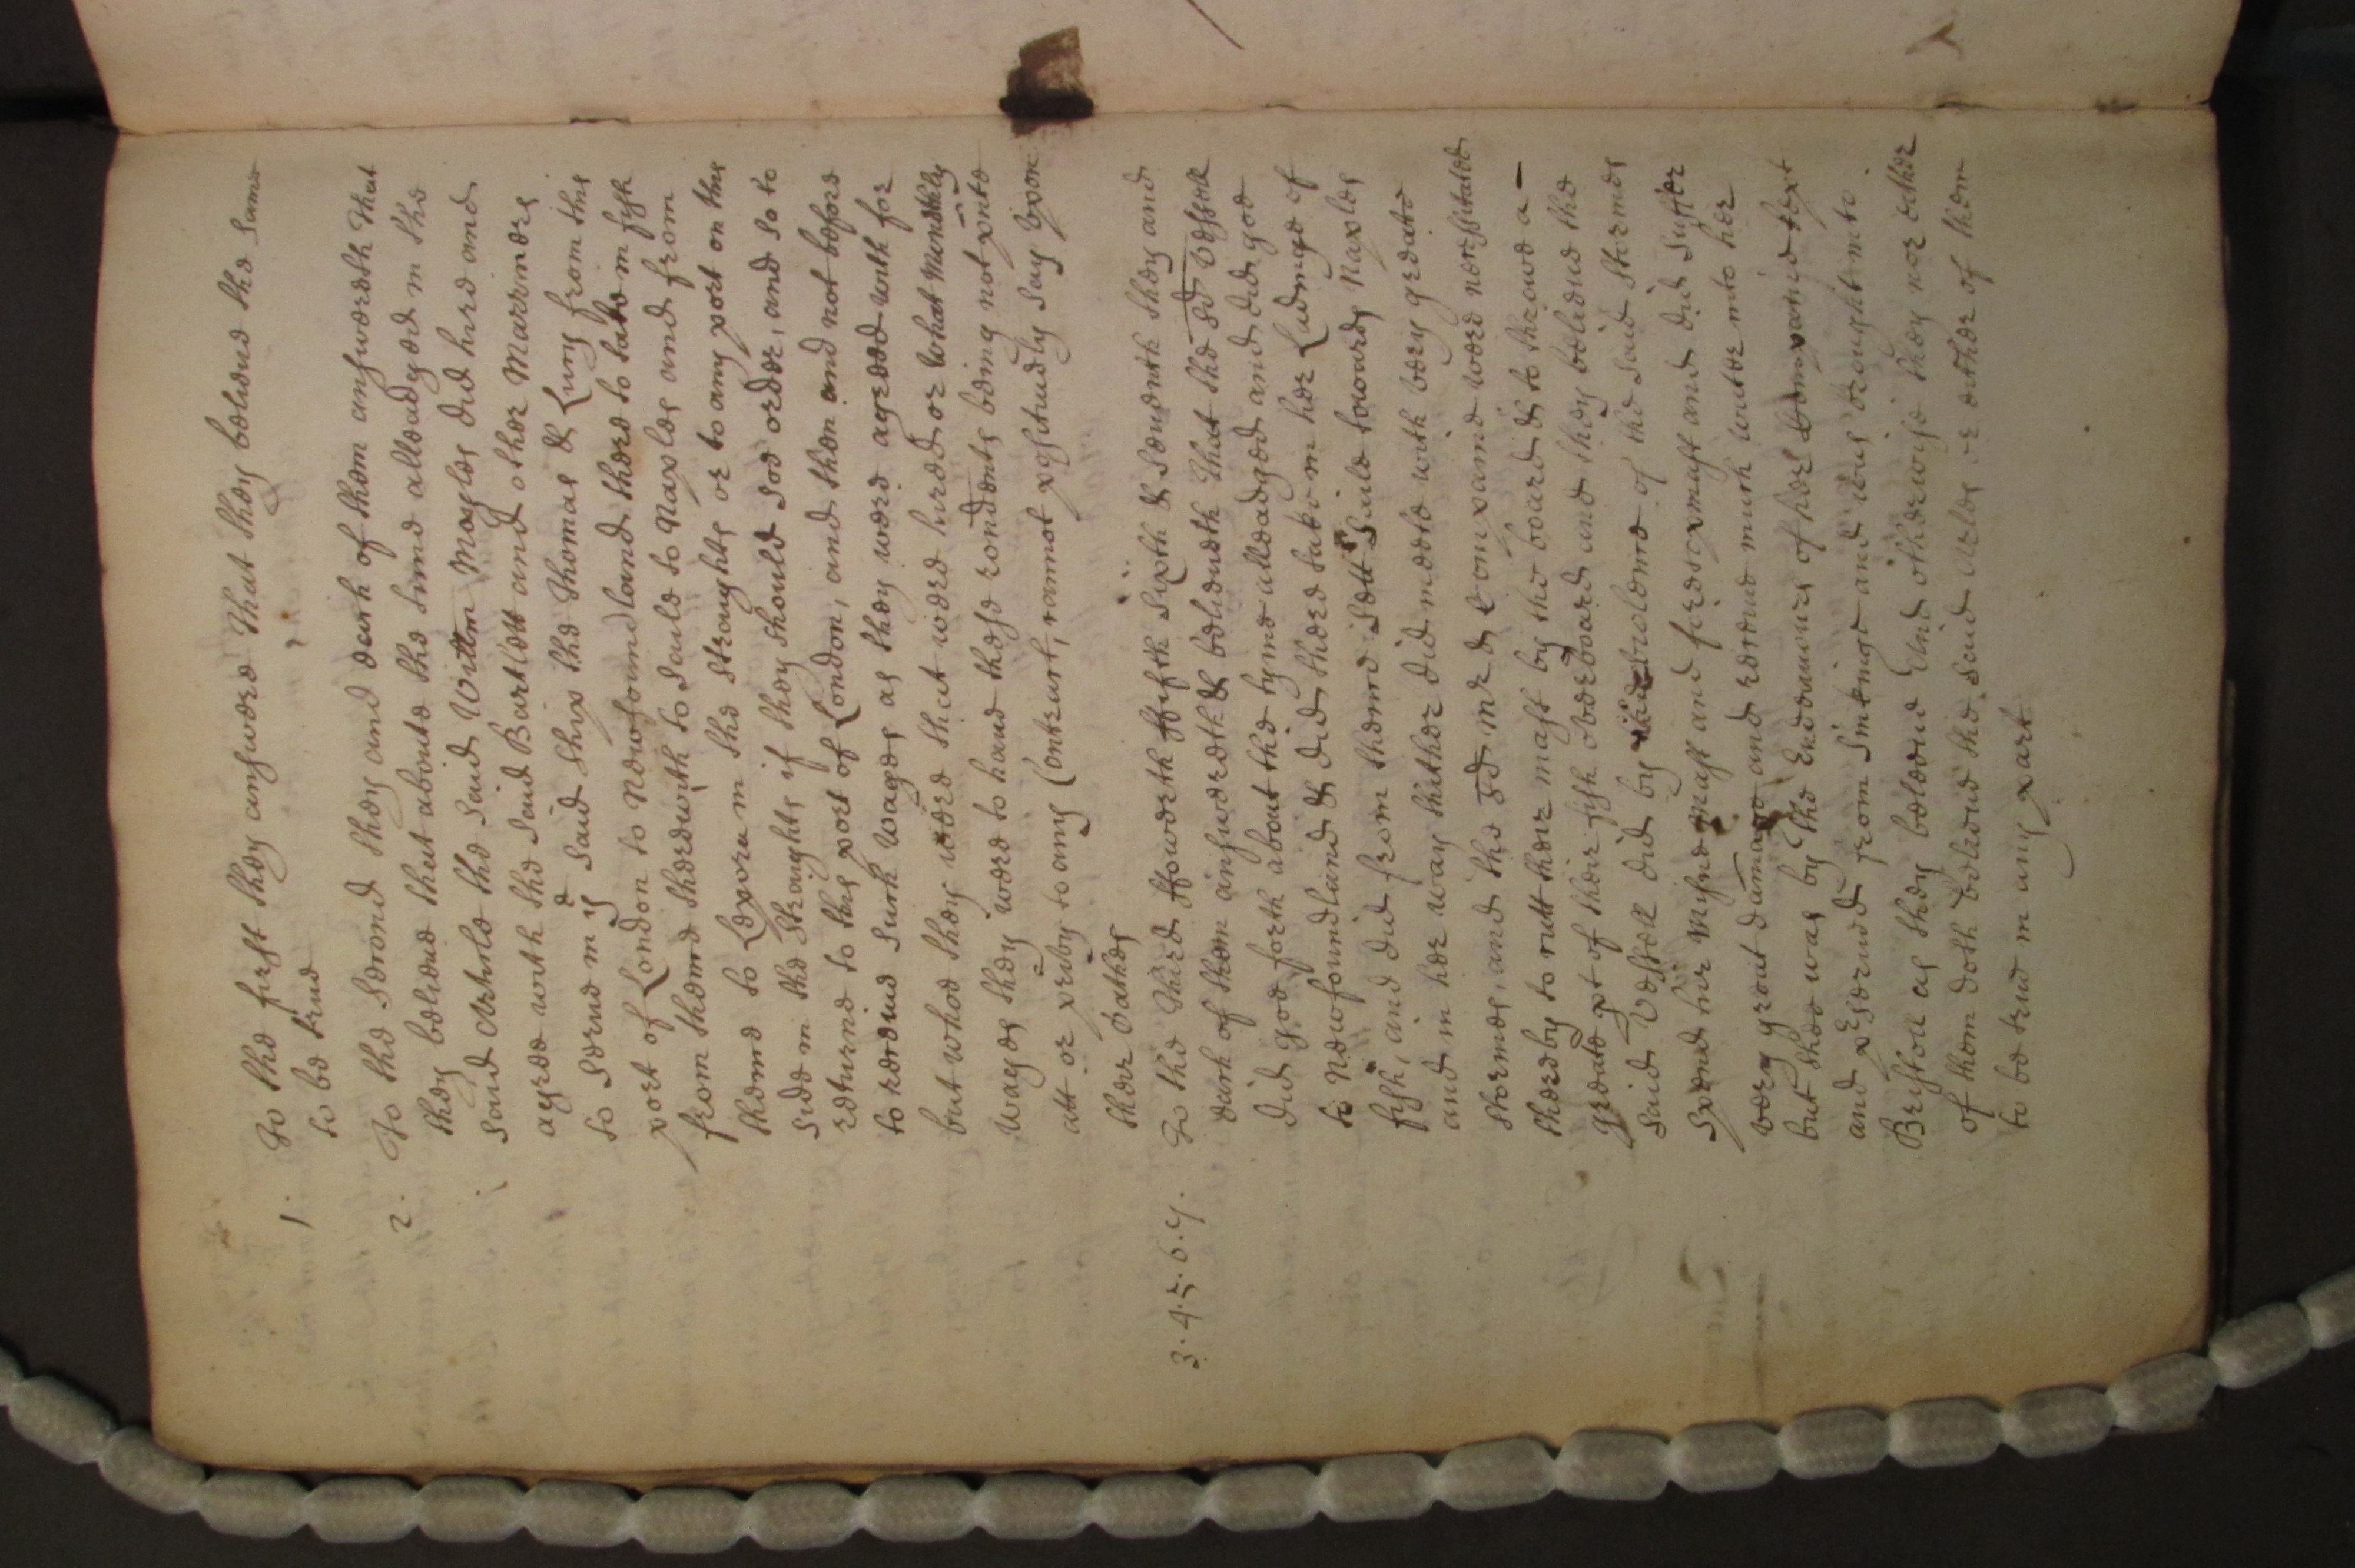 1. To the first they answere That they beleeve the same
to be true
2. To the second they and each of them answereth that
they beleive that aboute the time alleadged in the
said Article the said Willm Mayles did hire and
agree with the said Bartlett and other Marriners
to serve in ye said ship the Thomas & Lucy from this
port of London to Newfoundland there to take in fish
from thence therewith to saile to Naples and from
thence to Lepora in the straughts or to any port on this
side in the Straights if they should see order, and so to
returne to this port of London, and then and not before
to receive such wages as they were agreed with for
but whoe they were that were hired or what Monethly
wages they were to have these rendents being not pnte
att or privy to any Contract, cannot positively say upon
their Oathes
3. 4. 5. 6. 7. To the third ffowerth ffifth Sixth & Seaventh they and
each of them answereth & beleiveth that the sd vessell
did goe forth about the tyme alleadged and did goe
to Newfoundland & did there take in her Ladinge of
fish, and did from thence sett saile towards Naples
and in her way thither did meete with very greate
stormes, and the sd Mr & Companie were necessitated
thereby to cutt their mast by the board & to throwe a-
greate pt of their fish overboard and they beleive the
said Vessell did by violence of the said stormes
spend her Mysne mast and foretopmast and did suffer
very great damage and receive much water into her
but shee was by the Endeavours of her Companie kept
and pserved from sinking and was brought into
Bristoll as they beleeve And otherwise they nor either
of them doth beleeve the said Arles or either of them
to be true in any part